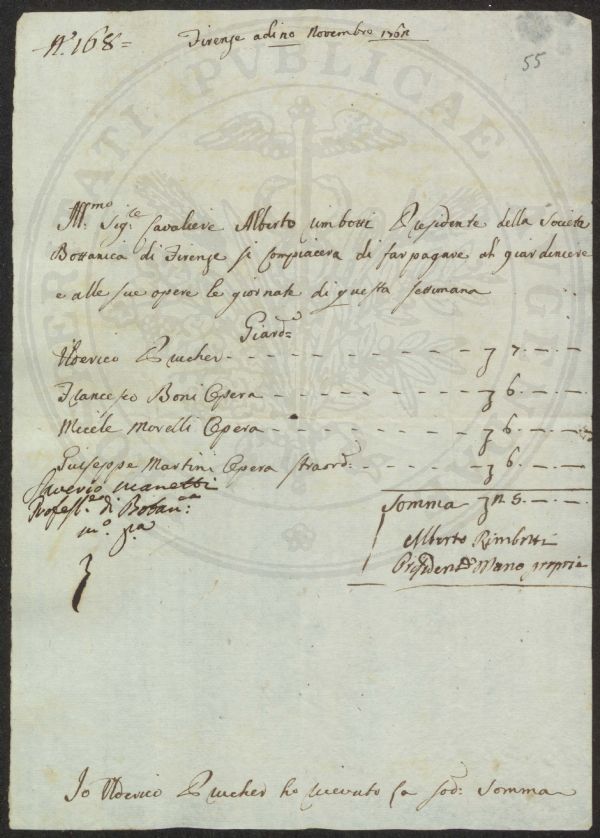 N.° 168 =
Firenze adi 10 Novembre
55
Ill.mo Sig.re Cavaliere Alberto Rimbotti Presidente della Societa
Bottanica di Firenze si Compiacera di far pagare al giardiniere
e alle sue opere le giornate di questa settimana
Giard.e
Ulderico Prucher - - - - - - - - 7 - -
Francesco Boni Opera - - - - - - - 6 - -
Micele Morelli Opera - - - - - - - 6 - -
Guiseppe Martini Opera straord.a - - - - 6 - -
Saverio Manetti
Profess.re di Botan.ca
m.o p.a
Somma 25 - -
Alberto Rimbotti
Presidente Mano propria
Io Ulderico Prucher ho ricevuto la sod.a Somma